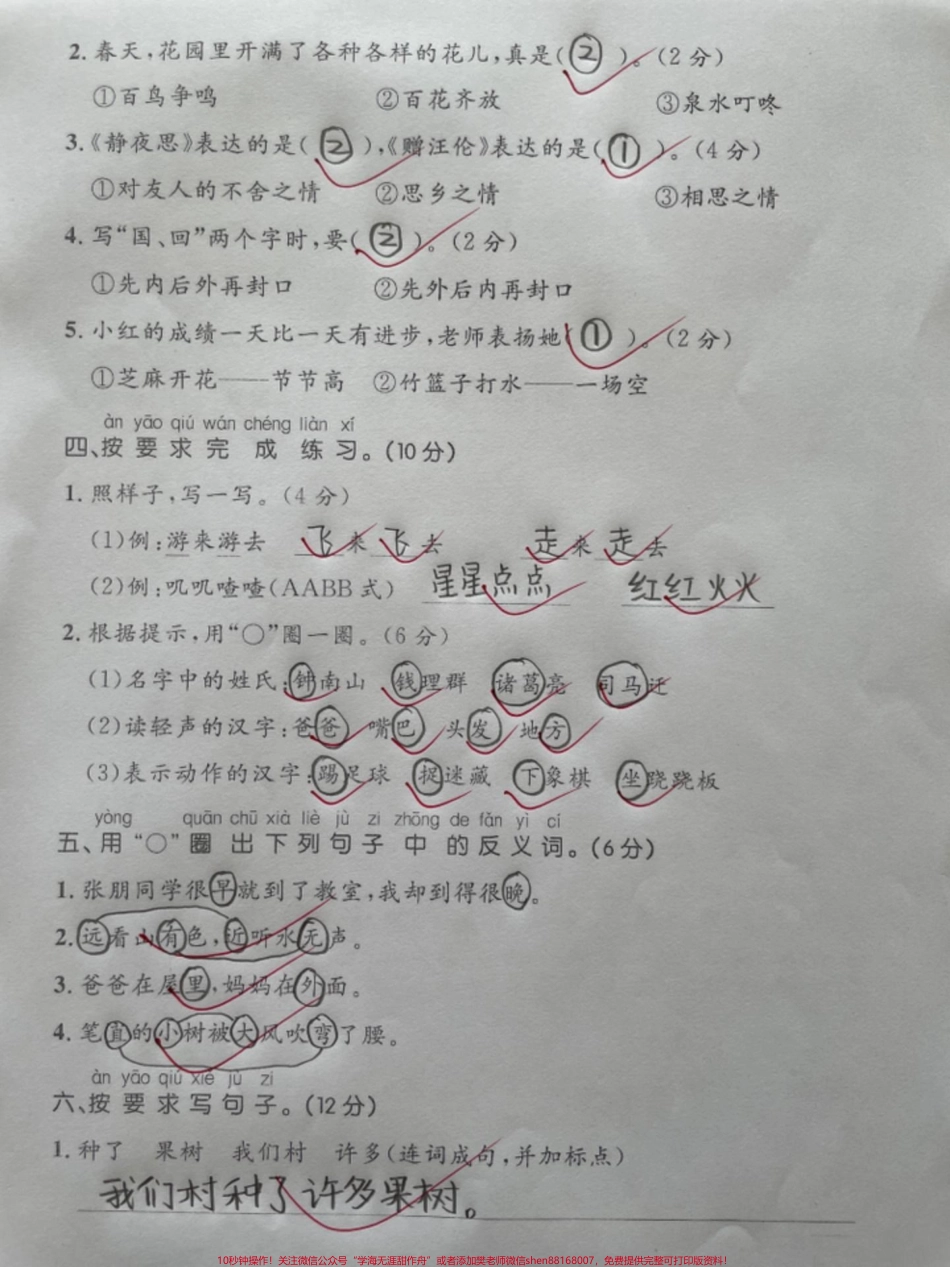 2. 春天,花园里开满了各种各样的花儿,真是(②)。(2分)
①百鸟争鸣 ②百花齐放 ③泉水叮咚
3.《静夜思》表达的是(②),《赠汪伦》表达的是(①)。(4分)
①对友人的不舍之情 ②思乡之情 ③相思之情
4. 写“国、回”两个字时,要(②)。(2分)
①先内后外再封口 ②先外后内再封口
5. 小红的成绩一天比一天有进步,老师表扬她(①)。(2分)
①芝麻开花——节节高 ②竹篮子打水——一场空
àn yāo qiú wán chéng liàn xí
四、按要求完成练习。(10分)
1. 照样子,写一写。(4分)
(1)例:游来游去 飞来飞去 走来走去
(2)例:叽叽喳喳(AABB式) 星星点点 红红火火
2. 根据提示,用“○”圈一圈。(6分)
(1)名字中的姓氏:钟南山 钱理群 诸葛亮 司马迁
(2)读轻声的汉字:爸爸 嘴巴 头发 地方
(3)表示动作的汉字:踢足球 捉迷藏 下象棋 坐跷跷板
yòng quān chū xià liè jù zi zhōng de fǎn yì cí
五、用“○”圈出下列句子中的反义词。(6分)
1. 张朋同学很早就到了教室,我却到得很晚。
2. 远看山有色,近听水无声。
3. 爸爸在屋里,妈妈在外面。
4. 笔直的小树被大风吹弯了腰。
àn yāo qiú xiě jù zi
六、按要求写句子。(12分)
1. 种了 果树 我们村 许多(连词成句,并加标点)
我们村种了许多果树。
10秒钟操作!关注微信公众号“学海无涯甜作舟”或者添加樊老师微信shen88168007,免费提供完整可打印版资料!